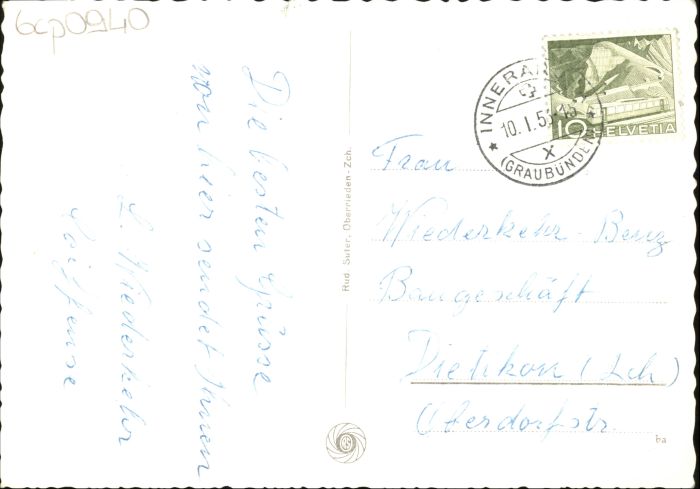 6cp0940
Die besten Grüsse
von hier sendet Ihnen
L. Wiederkehr
Rud. Suter, Oberrieden-Zch.
INNERA
10.I.55-18
X
(GRAUBÜNDEN)
10 HELVETIA
Frau
Wiederkehr-Benz
Baugeschäft
Dietikon (Zch)
Oberdorfstr.
ba